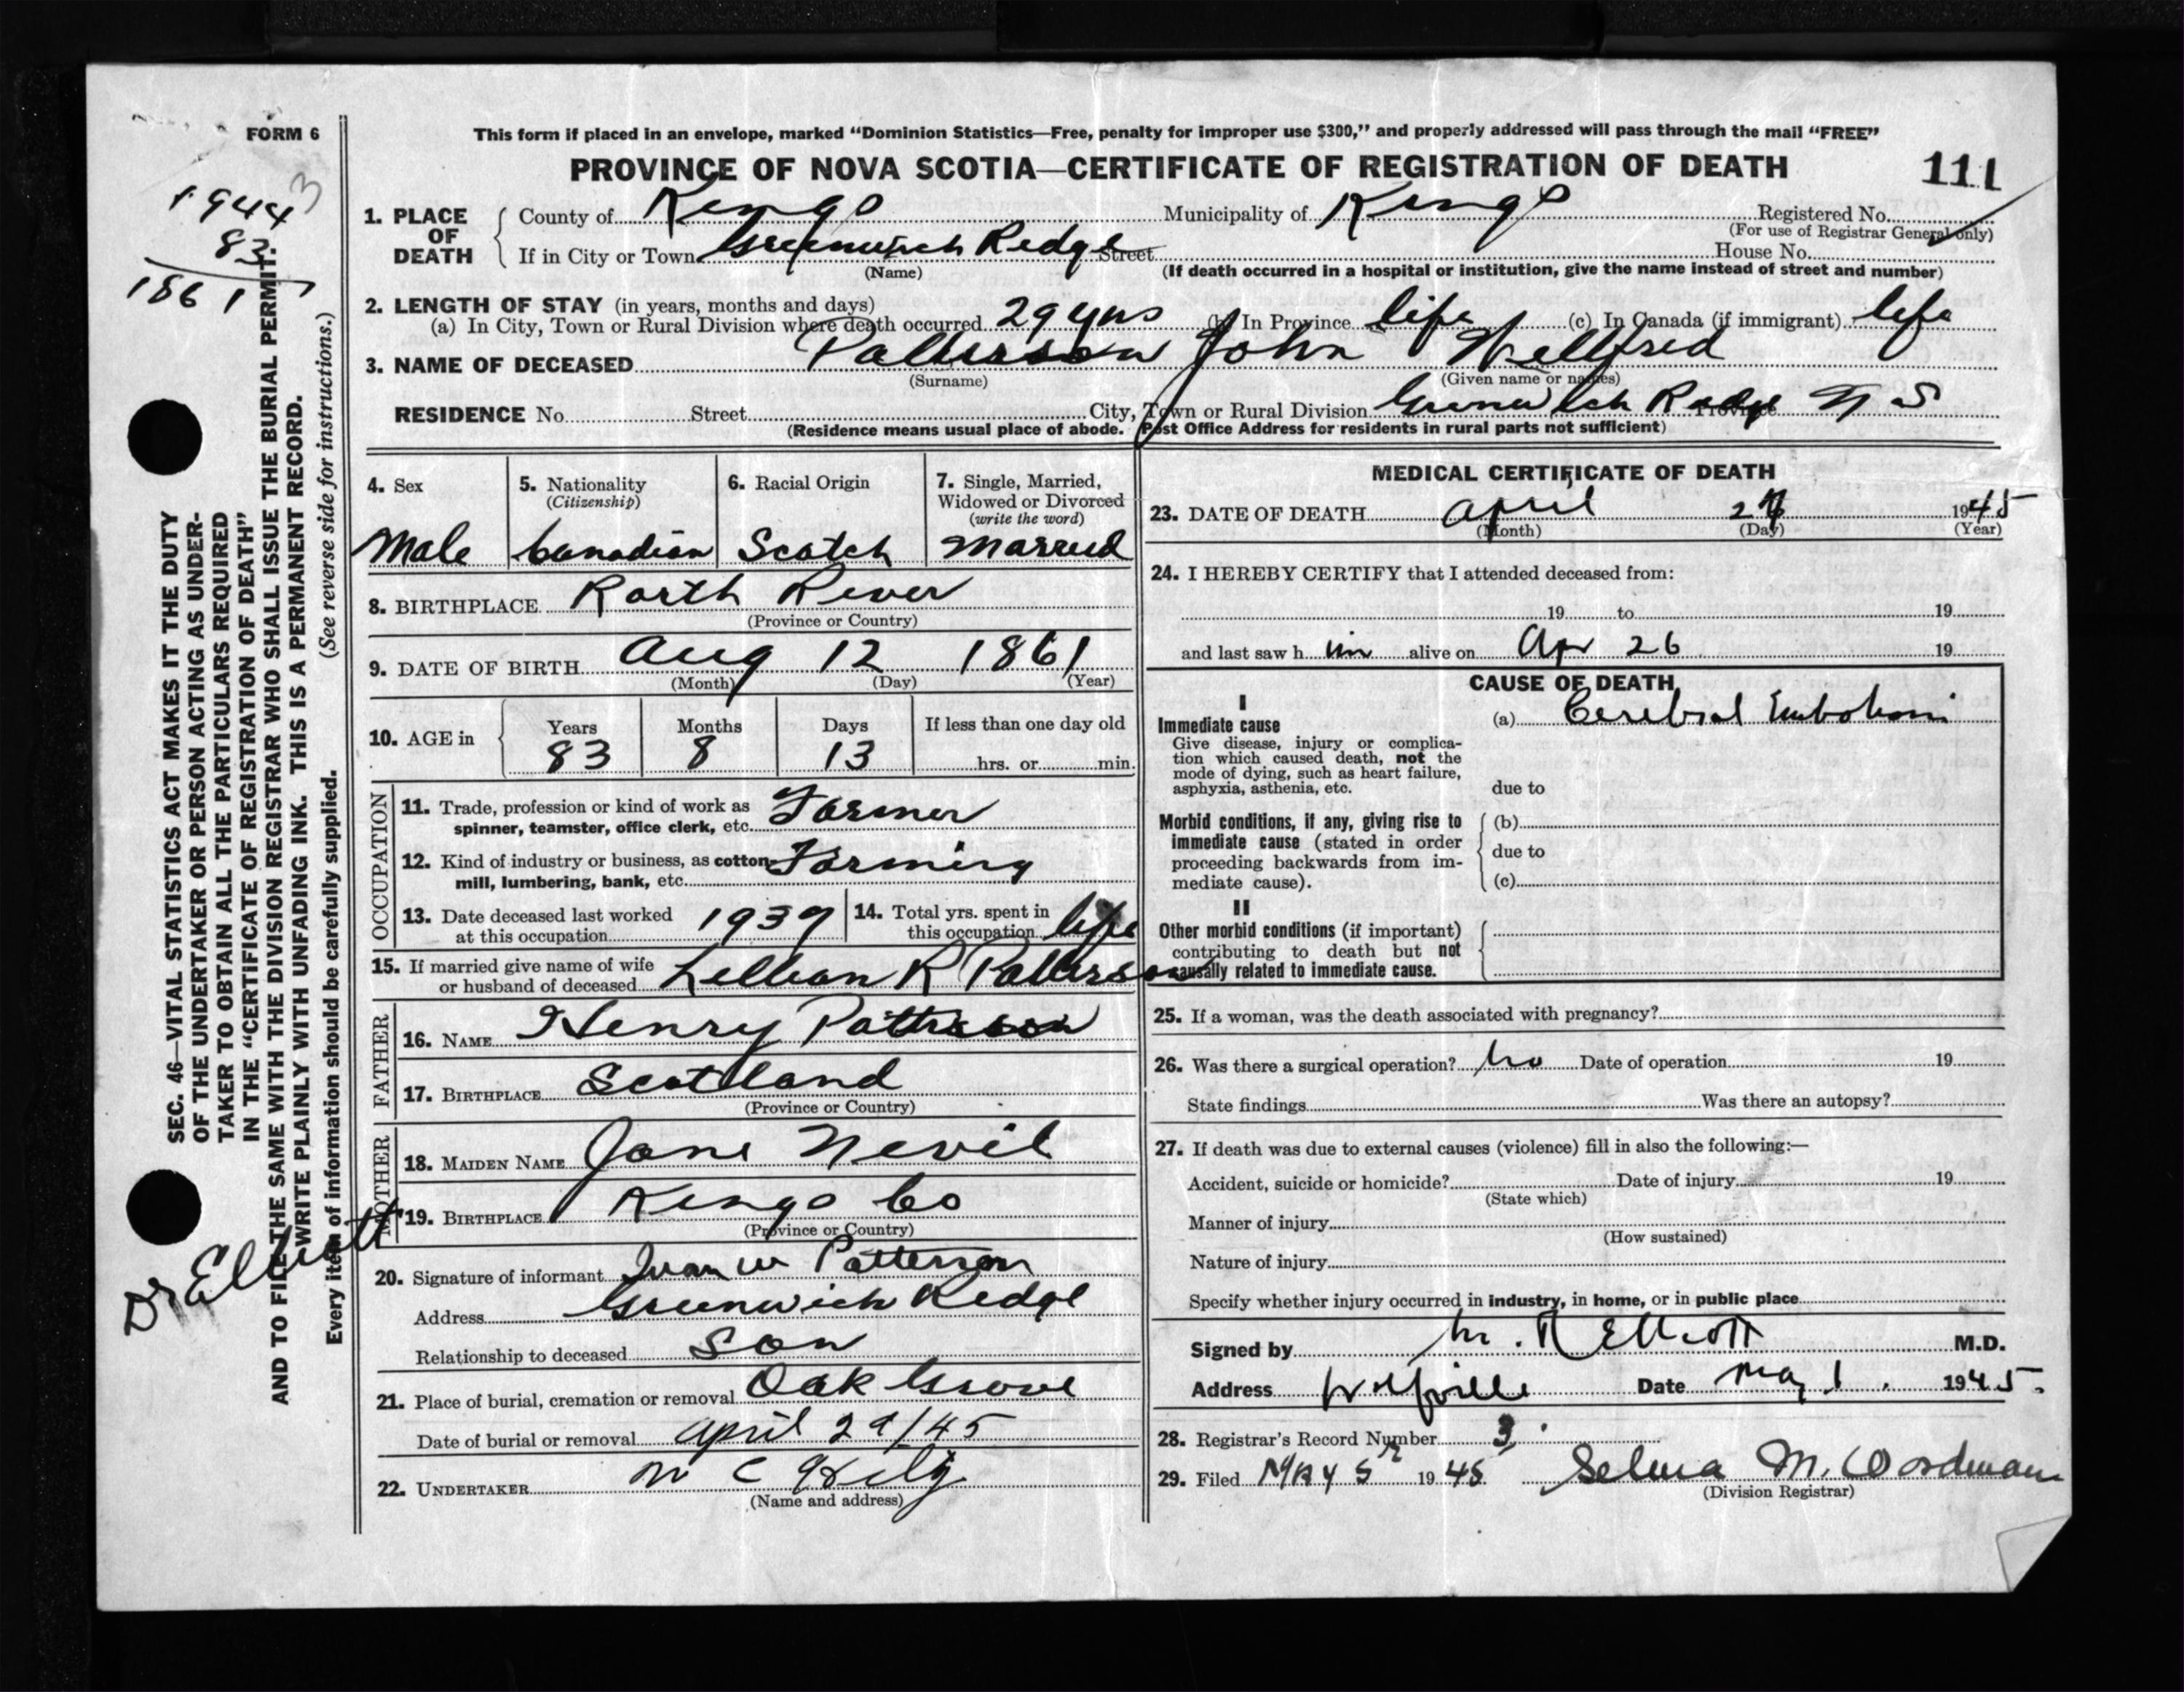 FORM 6
This form if placed in an envelope, marked “Dominion Statistics—Free, penalty for improper use $300,” and properly addressed will pass through the mail “FREE”
PROVINCE OF NOVA SCOTIA—CERTIFICATE OF REGISTRATION OF DEATH
111
1944 3
83
1861
SEC. 46—VITAL STATISTICS ACT MAKES IT THE DUTY
OF THE UNDERTAKER OR PERSON ACTING AS UNDER-
TAKER TO OBTAIN ALL THE PARTICULARS REQUIRED
IN THE “CERTIFICATE OF REGISTRATION OF DEATH”
AND TO FILE THE SAME WITH THE DIVISION REGISTRAR WHO SHALL ISSUE THE BURIAL PERMIT.
WRITE PLAINLY WITH UNFADING INK. THIS IS A PERMANENT RECORD.
Every item of information should be carefully supplied. (See reverse side for instructions.)
Dr Elliott
1. PLACE OF DEATH
County of Kings Municipality of Kings Registered No.
(For use of Registrar General only)
If in City or Town Greenwich Ridge Street House No.
(Name) (If death occurred in a hospital or institution, give the name instead of street and number)
2. LENGTH OF STAY (in years, months and days)
(a) In City, Town or Rural Division where death occurred 29 yrs (b) In Province life (c) In Canada (if immigrant) life
3. NAME OF DECEASED Patterson John Willfred
(Surname) (Given name or names)
RESIDENCE No. Street City, Town or Rural Division Grenwich Ridge Province N S
(Residence means usual place of abode. Post Office Address for residents in rural parts not sufficient)
4. Sex
Male
5. Nationality
(Citizenship)
Canadian
6. Racial Origin
Scotch
7. Single, Married,
Widowed or Divorced
(write the word)
Married
8. BIRTHPLACE River
(Province or Country)
9. DATE OF BIRTH Aug 12 1861
(Month) (Day) (Year)
10. AGE in
Years Months Days If less than one day old
83 8 13 hrs. or min.
OCCUPATION
11. Trade, profession or kind of work as
spinner, teamster, office clerk, etc. Farmer
12. Kind of industry or business, as cotton-
mill, lumbering, bank, etc. Farming
13. Date deceased last worked
at this occupation 1939
14. Total yrs. spent in
this occupation life
15. If married give name of wife
or husband of deceased Lillian R Patterson
FATHER
16. NAME Henry Patterson
17. BIRTHPLACE Scotland
(Province or Country)
MOTHER
18. MAIDEN NAME Jane Nevil
19. BIRTHPLACE Kings Co
(Province or Country)
20. Signature of informant Ivan W Patterson
Address Greenwich Ridge
Relationship to deceased Son
21. Place of burial, cremation or removal Oak Grove
Date of burial or removal April 29/45
22. UNDERTAKER
(Name and address)
MEDICAL CERTIFICATE OF DEATH
23. DATE OF DEATH April 1945
(Month) (Day) (Year)
24. I HEREBY CERTIFY that I attended deceased from:
19 to 19
and last saw h im alive on Apr 26 19
CAUSE OF DEATH
I
Immediate cause
Give disease, injury or complica-
tion which caused death, not the
mode of dying, such as heart failure,
asphyxia, asthenia, etc.
(a) Cerebral Embolism
due to
Morbid conditions, if any, giving rise to
immediate cause (stated in order
proceeding backwards from im-
mediate cause).
(b)
due to
(c)
II
Other morbid conditions (if important)
contributing to death but not
causally related to immediate cause.
25. If a woman, was the death associated with pregnancy?
26. Was there a surgical operation? No Date of operation 19
State findings Was there an autopsy?
27. If death was due to external causes (violence) fill in also the following:—
Accident, suicide or homicide? Date of injury 19
(State which)
Manner of injury
(How sustained)
Nature of injury
Specify whether injury occurred in industry, in home, or in public place
Signed by M. R Elliott M.D.
Address Wolfville Date May 1. 1945.
28. Registrar's Record Number 3
29. Filed MAY 5 1945 Selma M. Woodman
(Division Registrar)